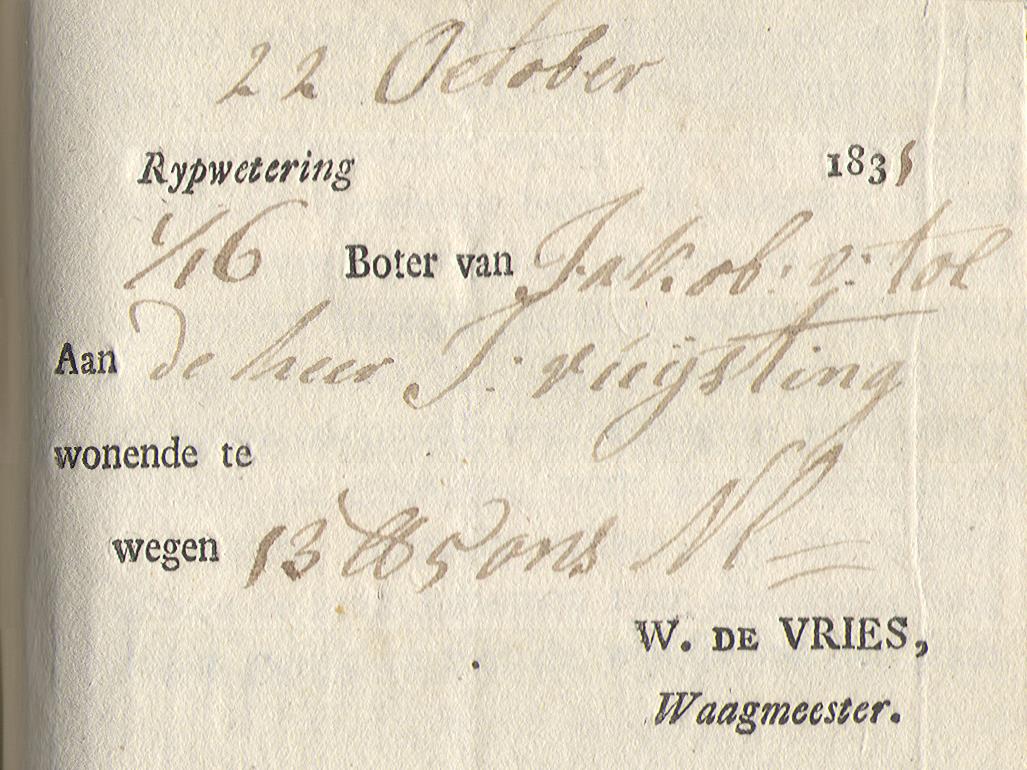 22 October
Rypwetering 1831
1/16 Boter van Jakob: v: tol
Aan de heer J: vuijsting
wonende te
wegen 13 ℔ 5 ons Nl
W. DE VRIES,
Waagmeester.